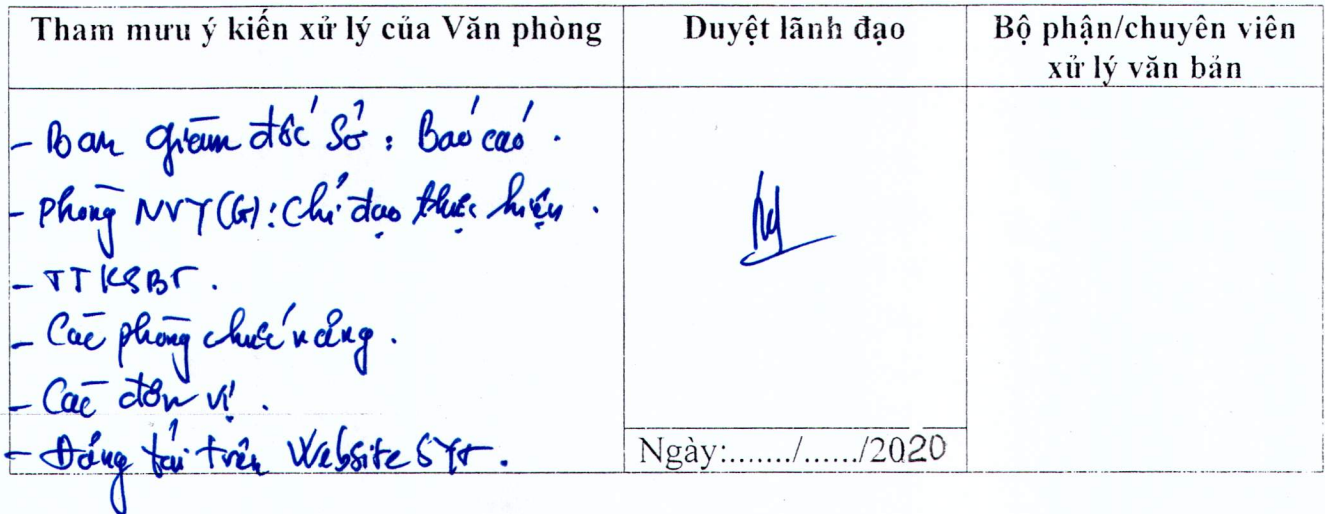 Tham mưu ý kiến xử lý của Văn phòng
Duyệt lãnh đạo
Bộ phận/chuyên viên
xử lý văn bản
- Ban giám đốc Sở : Báo cáo .
- Phòng NVY (G) : Chỉ đạo thực hiện .
- TTKSBT .
- Các phòng chức năng .
- Các đơn vị .
- Đăng tải trên Website SYT .
Ngày:......./....../2020